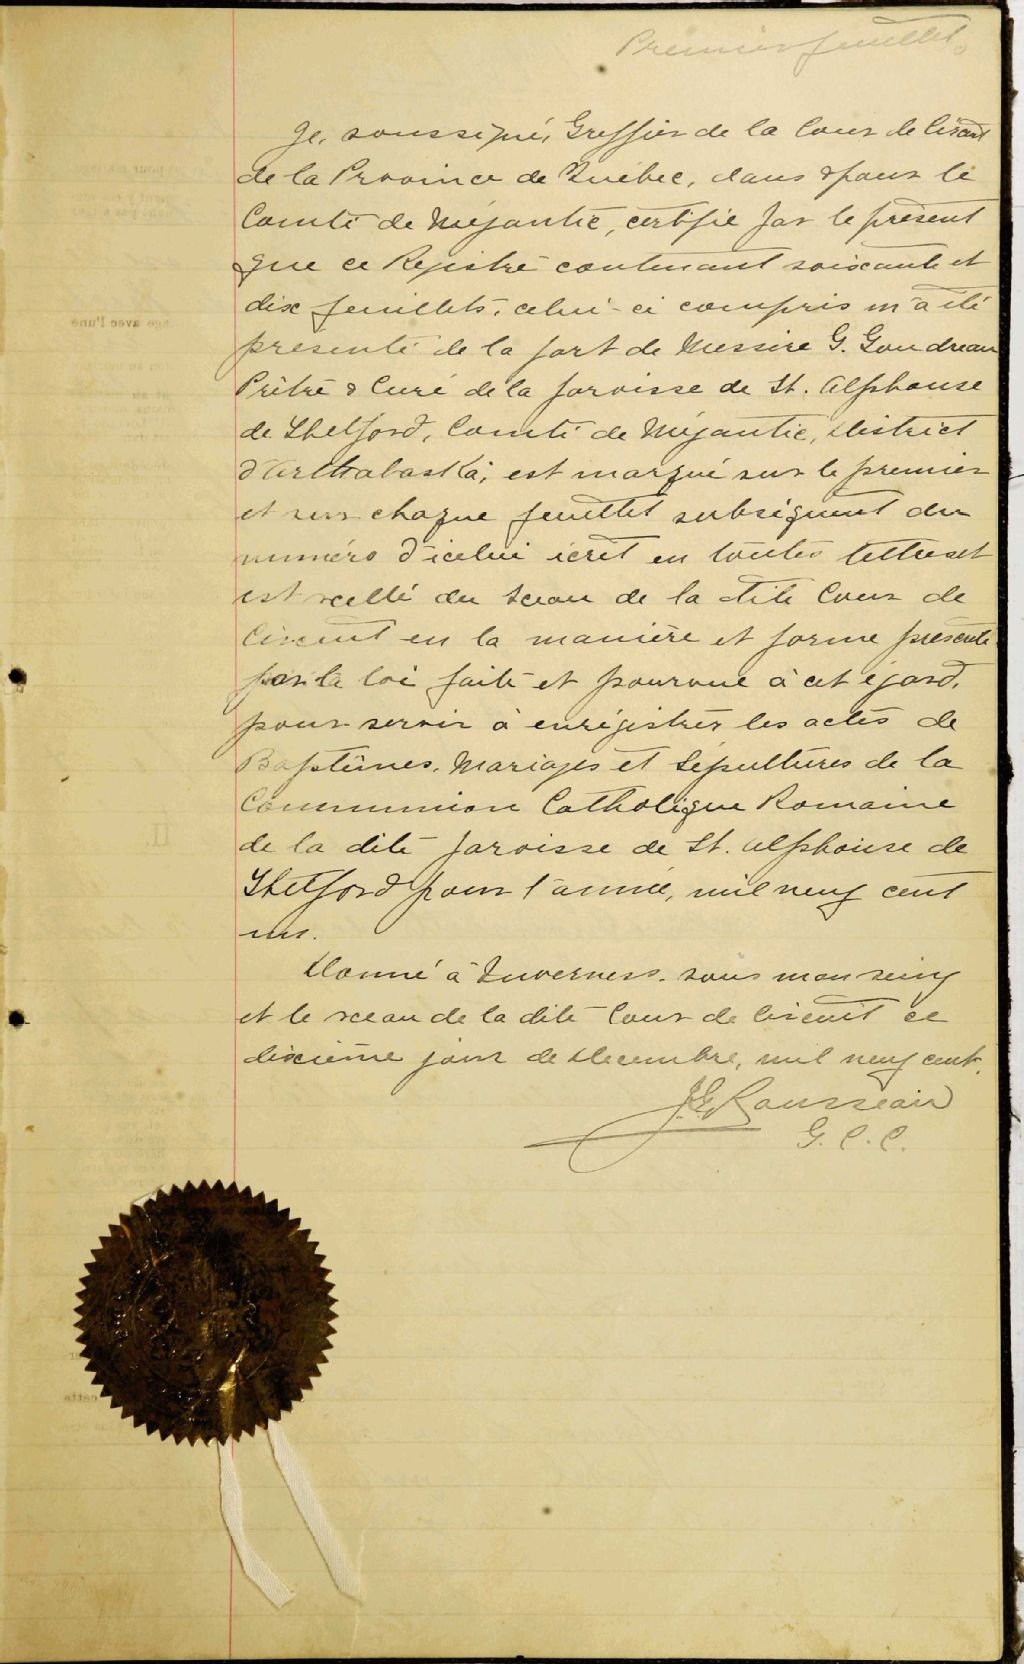 Premier feuillet.
Je, soussigné, Greffier de la Cour de Circuit
de la Province de Québec, dans & pour le
Comté de Mégantic, certifie par le présent
que ce Régistre contenant soixante et
dix feuillets, celui-ci compris m'a été
présenté de la part de Messire G. Goudreau
Prêtre & Curé de la paroisse de St. Alphonse
de Thetford, Comté de Mégantic, District
d'Arthabaska; est marqué sur le premier
et sur chaque feuillet subséquent du
numéro d'icelui écrit en toutes lettres et
est scellé du Sceau de la dite Cour de
Circuit en la manière et forme préscrite
par la loi faite et pourvue à cet égard,
pour servir à enrégistrer les actes de
Baptêmes, Mariages et Sépultures de la
Communion Catholique Romaine
de la dite paroisse de St. Alphonse de
Thetford pour l'année, mil neuf cent
un.
Donné à Inverness, sous mon seing
et le sceau de la dite Cour de Circuit ce
dixième jour de Décembre, mil neuf cent.
J.E. Rousseau
G. C. C.